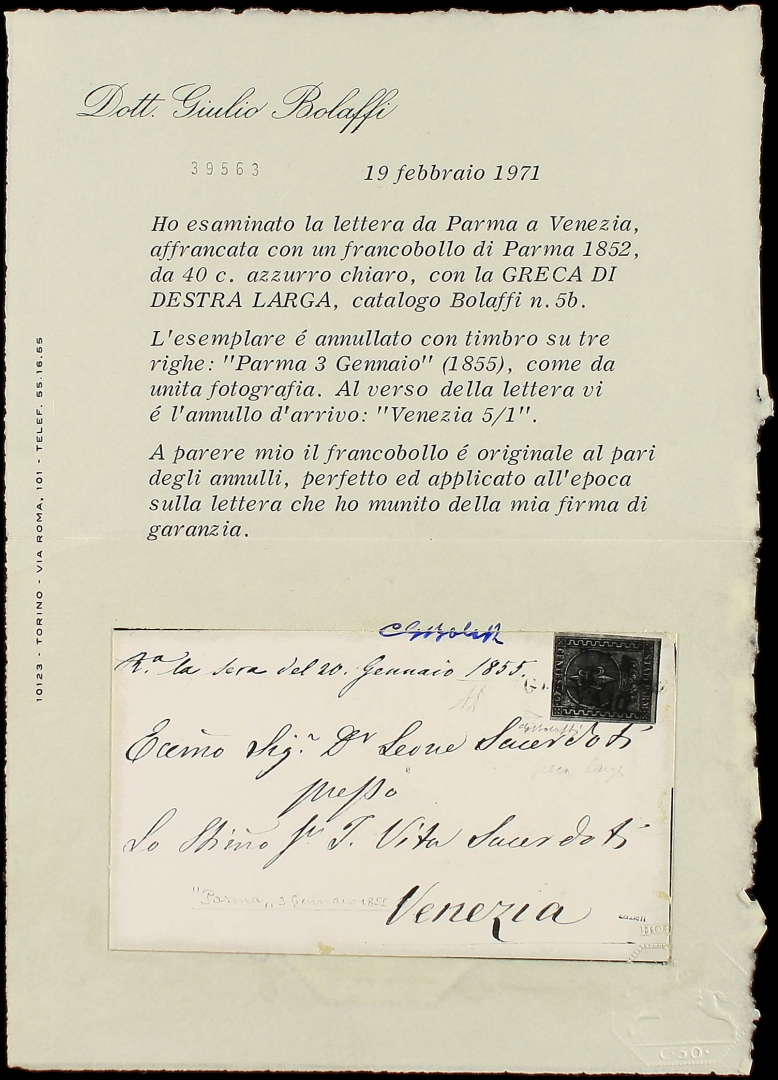 Dott. Giulio Bolaffi
39563
19 febbraio 1971
Ho esaminato la lettera da Parma a Venezia,
affrancata con un francobollo di Parma 1852,
da 40 c. azzurro chiaro, con la GRECA DI
DESTRA LARGA, catalogo Bolaffi n. 5b.
L'esemplare é annullato con timbro su tre
righe: "Parma 3 Gennaio" (1855), come da
unita fotografia. Al verso della lettera vi
é l'annullo d'arrivo: "Venezia 5/1".
A parere mio il francobollo é originale al pari
degli annulli, perfetto ed applicato all'epoca
sulla lettera che ho munito della mia firma di
garanzia.
10123 - TORINO - VIA ROMA, 101 - TELEF. 55.16.55
R.a la sera del 20. Gennaio 1855.
Ecc̃mo Sig.r Dr Leone Sacerdoti
presso
Lo Stim̃o T. Vita Sacerdoti
"Parma,, 3 Gennaio 1855
Venezia
C·50·